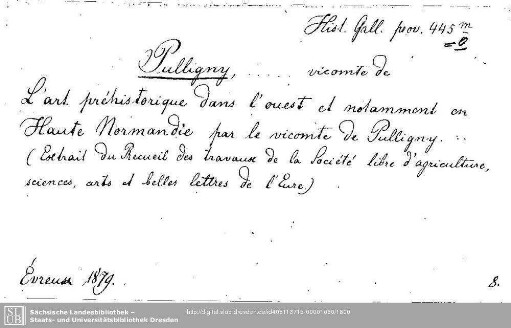 Hist. Gall. prov. 445 m
=0
Pulligny, ..... vicomte de
L'art préhistorique dans l'ouest et notamment en
Haute Normandie par le vicomte de Pulligny. ..
(Extrait du Recueil des travaux de la Société libre d'agriculture,
sciences, arts et belles lettres de l'Eure.)
Évreux 1879. 8.
SLUB Sächsische Landesbibliothek –
Staats- und Universitätsbibliothek Dresden